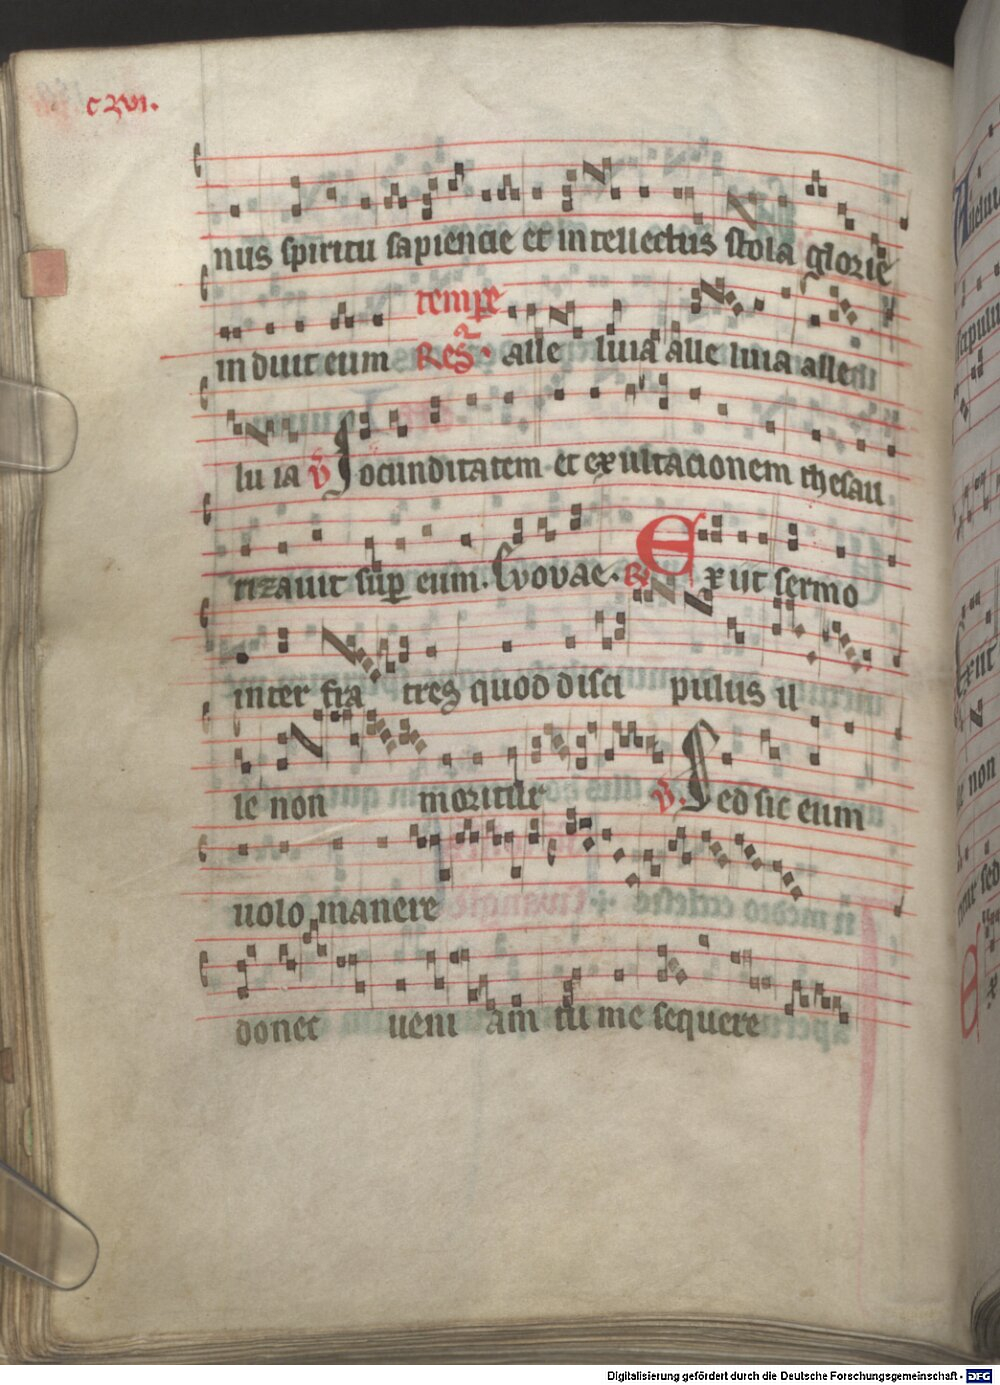 c xvi.
nus spiritu sapiencie et intellectus stola glorie
induit eum temp̲e Res̃. alle luia alle luia alle
lu ia v̄ Jocunditatem et exultacionem thesau
rizauit sup̲ eum. Evovae. R̄ Exut sermo
inter fra tres quod disci pulus il
le non moritur v̄. Sed sic eum
uolo manere
donec ueni am tu me sequere
Digitalisierung gefördert durch die Deutsche Forschungsgemeinschaft - DFG